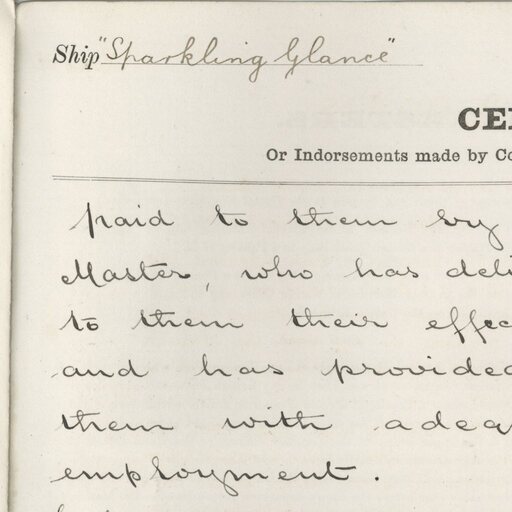 Ship "Sparkling Glance"
CE
Or Indorsements made by Co
paid to them by
Master, who has deli
to them their effec
and has provided
them with adeq
employment.